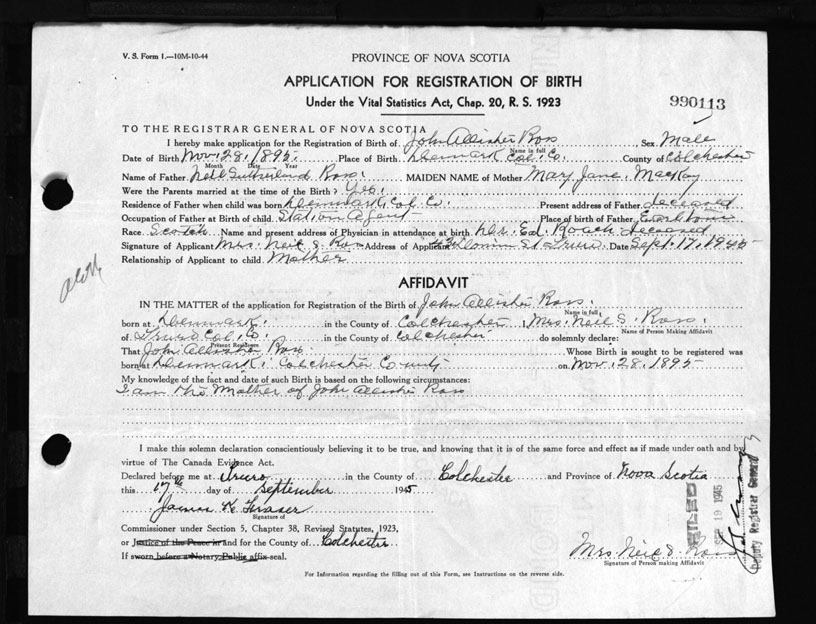 V. S. Form 1.—10M-10-44
PROVINCE OF NOVA SCOTIA
APPLICATION FOR REGISTRATION OF BIRTH
Under the Vital Statistics Act, Chap. 20, R. S. 1923
990113
TO THE REGISTRAR GENERAL OF NOVA SCOTIA
I hereby make application for the Registration of Birth of John Allister Ross Sex Male
Name in full
Date of Birth Nov. 28, 1895. Place of Birth Denmark Col. Co. County of Colchester
Month Date Year
Name of Father Neil Sutherland Ross. MAIDEN NAME of Mother Mary Jane MacKay
Were the Parents married at the time of the Birth? Yes.
Residence of Father when child was born Denmark, Col. Co. Present address of Father deceased
Occupation of Father at Birth of child Station Agent Place of birth of Father Earltown
Race Scotch Name and present address of Physician in attendance at birth Dr. Ed. Roach deceased
Signature of Applicant Mrs. Neil S. Ross Address of Applicant St. Truro. Date Sept. 17, 1945
Relationship of Applicant to child Mother
AFFIDAVIT
IN THE MATTER of the application for Registration of the Birth of John Allister Ross.
Name in full
born at Denmark. in the County of Colchester, Mrs. Neil S. Ross.
Name of Person Making Affidavit
of Truro Col. Co. in the County of Colchester do solemnly declare:
Present Residence
That John Allister Ross Whose Birth is sought to be registered was
born at Denmark, Colchester County on Nov. 28, 1895
My knowledge of the fact and date of such Birth is based on the following circumstances:
I am the Mother of John Allister Ross
I make this solemn declaration conscientiously believing it to be true, and knowing that it is of the same force and effect as if made under oath and by
virtue of The Canada Evidence Act.
Declared before me at Truro in the County of Colchester and Province of Nova Scotia
this 17th day of September 1945
James K. Fraser
Signature of
Commissioner under Section 5, Chapter 38, Revised Statutes, 1923,
or Justice of the Peace in and for the County of Colchester
If sworn before a Notary Public affix seal.
Mrs. Neil S. Ross
Signature of Person making Affidavit
FILED
SEP 19 1945
Deputy Registrar General
For Information regarding the filling out of this Form, see Instructions on the reverse side.